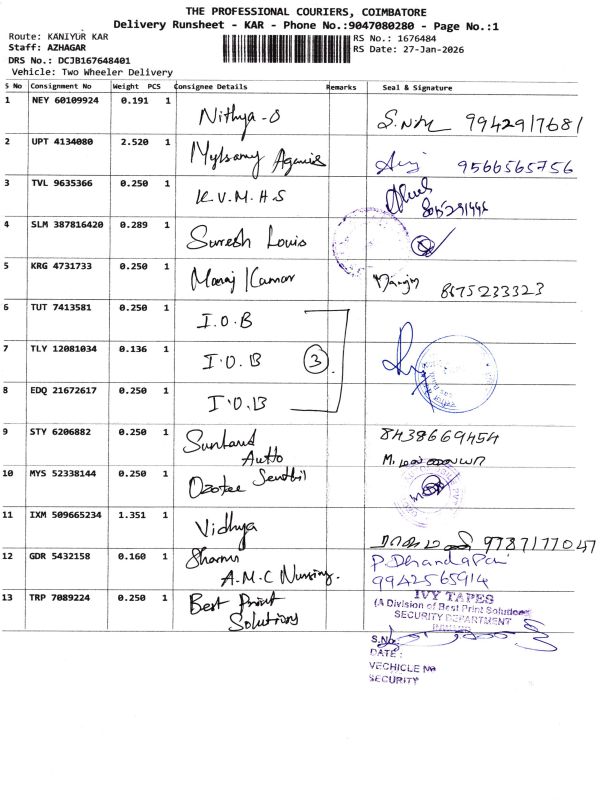 THE PROFESSIONAL COURIERS, COIMBATORE
Delivery Runsheet - KAR - Phone No.:9047080280 - Page No.:1
Route: KANIYUR KAR
RS No.: 1676484
Staff: AZHAGAR
RS Date: 27-Jan-2026
DRS No.: DCJB167648401
Vehicle: Two Wheeler Delivery
S No Consignment No Weight PCS Consignee Details Remarks Seal & Signature
1 NEY 60109924 0.191 1 Nithya-S 9942917681
2 UPT 4134080 2.520 1 Mylsamy 9566565756
3 TVL 9635366 0.250 1 K.V.M.H.S
4 SLM 387816420 0.289 1 Suresh Louis
5 KRG 4731733 0.250 1 Manoj Kumar 8675233323
6 TUT 7413581 0.250 1 I.O.B
7 TLY 12081034 0.136 1 I.O.B 3
8 EDQ 21672617 0.250 1 I.O.B
9 STY 6206882 0.250 1 Sunland Autto 8438669454
10 MYS 52338144 0.250 1 Ozotee Senthil
11 IXM 509665234 1.351 1 Vidhya 9787177047
12 GDR 5432158 0.160 1 Sharmi A.M.C Nursing. P.Dhandapani 9942565914
13 TRP 7089224 0.250 1 Best Print Solutions
IVY TAPES
(A Division of Best Print Solutions
SECURITY DEPARTMENT
S.No.
DATE:
VECHICLE No
SECURITY